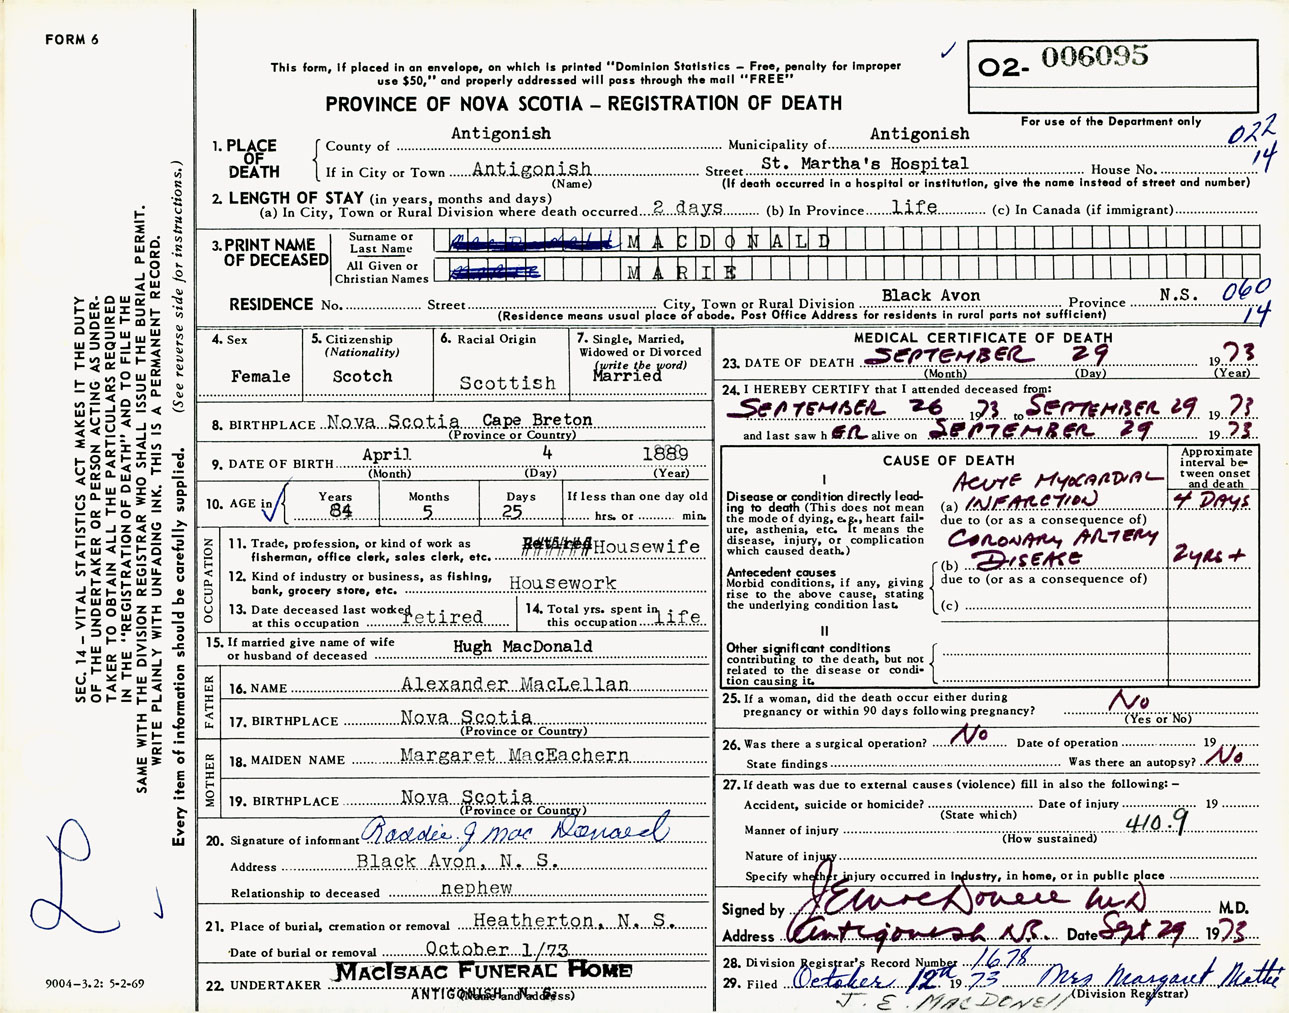 FORM 6
This form, if placed in an envelope, on which is printed "Dominion Statistics – Free, penalty for improper
use $50," and properly addressed will pass through the mail "FREE"
PROVINCE OF NOVA SCOTIA – REGISTRATION OF DEATH
O2- 006095
For use of the Department only
022
14
1. PLACE OF DEATH
County of Antigonish Municipality of Antigonish
If in City or Town Antigonish Street St. Martha's Hospital House No.
(Name) (If death occurred in a hospital or institution, give the name instead of street and number)
2. LENGTH OF STAY (in years, months and days)
(a) In City, Town or Rural Division where death occurred 2 days (b) In Province life (c) In Canada (if immigrant)
3. PRINT NAME OF DECEASED
Surname or Last Name MACDONALD
All Given or Christian Names MARIE
RESIDENCE No. Street City, Town or Rural Division Black Avon Province N.S. 060
14
(Residence means usual place of abode. Post Office Address for residents in rural parts not sufficient)
4. Sex
Female
5. Citizenship
(Nationality)
Scotch
6. Racial Origin
Scottish
7. Single, Married,
Widowed or Divorced
(write the word)
Married
8. BIRTHPLACE Nova Scotia Cape Breton
(Province or Country)
9. DATE OF BIRTH April 4 1889
(Month) (Day) (Year)
10. AGE in Years Months Days If less than one day old
84 5 25 hrs. or min.
OCCUPATION
11. Trade, profession, or kind of work as
fisherman, office clerk, sales clerk, etc. Retired Housewife
12. Kind of industry or business, as fishing,
bank, grocery store, etc. Housework
13. Date deceased last worked
at this occupation retired
14. Total yrs. spent in
this occupation life
15. If married give name of wife
or husband of deceased Hugh MacDonald
FATHER
16. NAME Alexander MacLellan
17. BIRTHPLACE Nova Scotia
(Province or Country)
MOTHER
18. MAIDEN NAME Margaret MacEachern
19. BIRTHPLACE Nova Scotia
(Province or Country)
20. Signature of informant Roddie J Mac Donald
Address Black Avon, N. S.
Relationship to deceased nephew
21. Place of burial, cremation or removal Heatherton, N. S.
Date of burial or removal October 1/73
22. UNDERTAKER MACISAAC FUNERAL HOME
ANTIGONISH, N. S.
(Name and address)
MEDICAL CERTIFICATE OF DEATH
23. DATE OF DEATH SEPTEMBER 29 1973
(Month) (Day) (Year)
24. I HEREBY CERTIFY that I attended deceased from:
SEPTEMBER 26 1973 to SEPTEMBER 29 1973
and last saw h ER alive on SEPTEMBER 29 1973
CAUSE OF DEATH
Approximate
interval be-
tween onset
and death
I
Disease or condition directly lead-
ing to death (This does not mean
the mode of dying, e.g., heart fail-
ure, asthenia, etc. It means the
disease, injury, or complication
which caused death.)
ACUTE MYOCARDIAL
(a) INFARCTION 4 DAYS
due to (or as a consequence of)
CORONARY ARTERY
(b) DISEASE 2 yrs +
Antecedent causes
Morbid conditions, if any, giving
rise to the above cause, stating
the underlying condition last.
due to (or as a consequence of)
(c)
II
Other significant conditions
contributing to the death, but not
related to the disease or condi-
tion causing it.
25. If a woman, did the death occur either during
pregnancy or within 90 days following pregnancy? No
(Yes or No)
26. Was there a surgical operation? No Date of operation 19
State findings Was there an autopsy? No
27. If death was due to external causes (violence) fill in also the following: –
Accident, suicide or homicide? Date of injury 19
(State which)
Manner of injury 410.9
(How sustained)
Nature of injury
Specify whether injury occurred in industry, in home, or in public place
Signed by J E MacDonell MD M.D.
Address Antigonish N.S. Date Sept 29 1973
28. Division Registrar's Record Number 1678
29. Filed October 12th 1973 Mrs Margaret Mattie
(Division Registrar)
J. E. MACDONELL
SEC. 14 – VITAL STATISTICS ACT MAKES IT THE DUTY
OF THE UNDERTAKER OR PERSON ACTING AS UNDER-
TAKER TO OBTAIN ALL THE PARTICULARS REQUIRED
IN THE "REGISTRATION OF DEATH" AND TO FILE THE
SAME WITH THE DIVISION REGISTRAR WHO SHALL ISSUE THE BURIAL PERMIT.
WRITE PLAINLY WITH UNFADING INK. THIS IS A PERMANENT RECORD.
Every item of information should be carefully supplied. (See reverse side for instructions.)
9004-3.2: 5-2-69